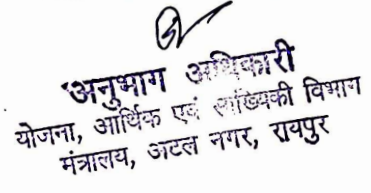 अनुभाग अधिकारी
योजना, आर्थिक एवं सांख्यिकी विभाग
मंत्रालय, अटल नगर, रायपुर